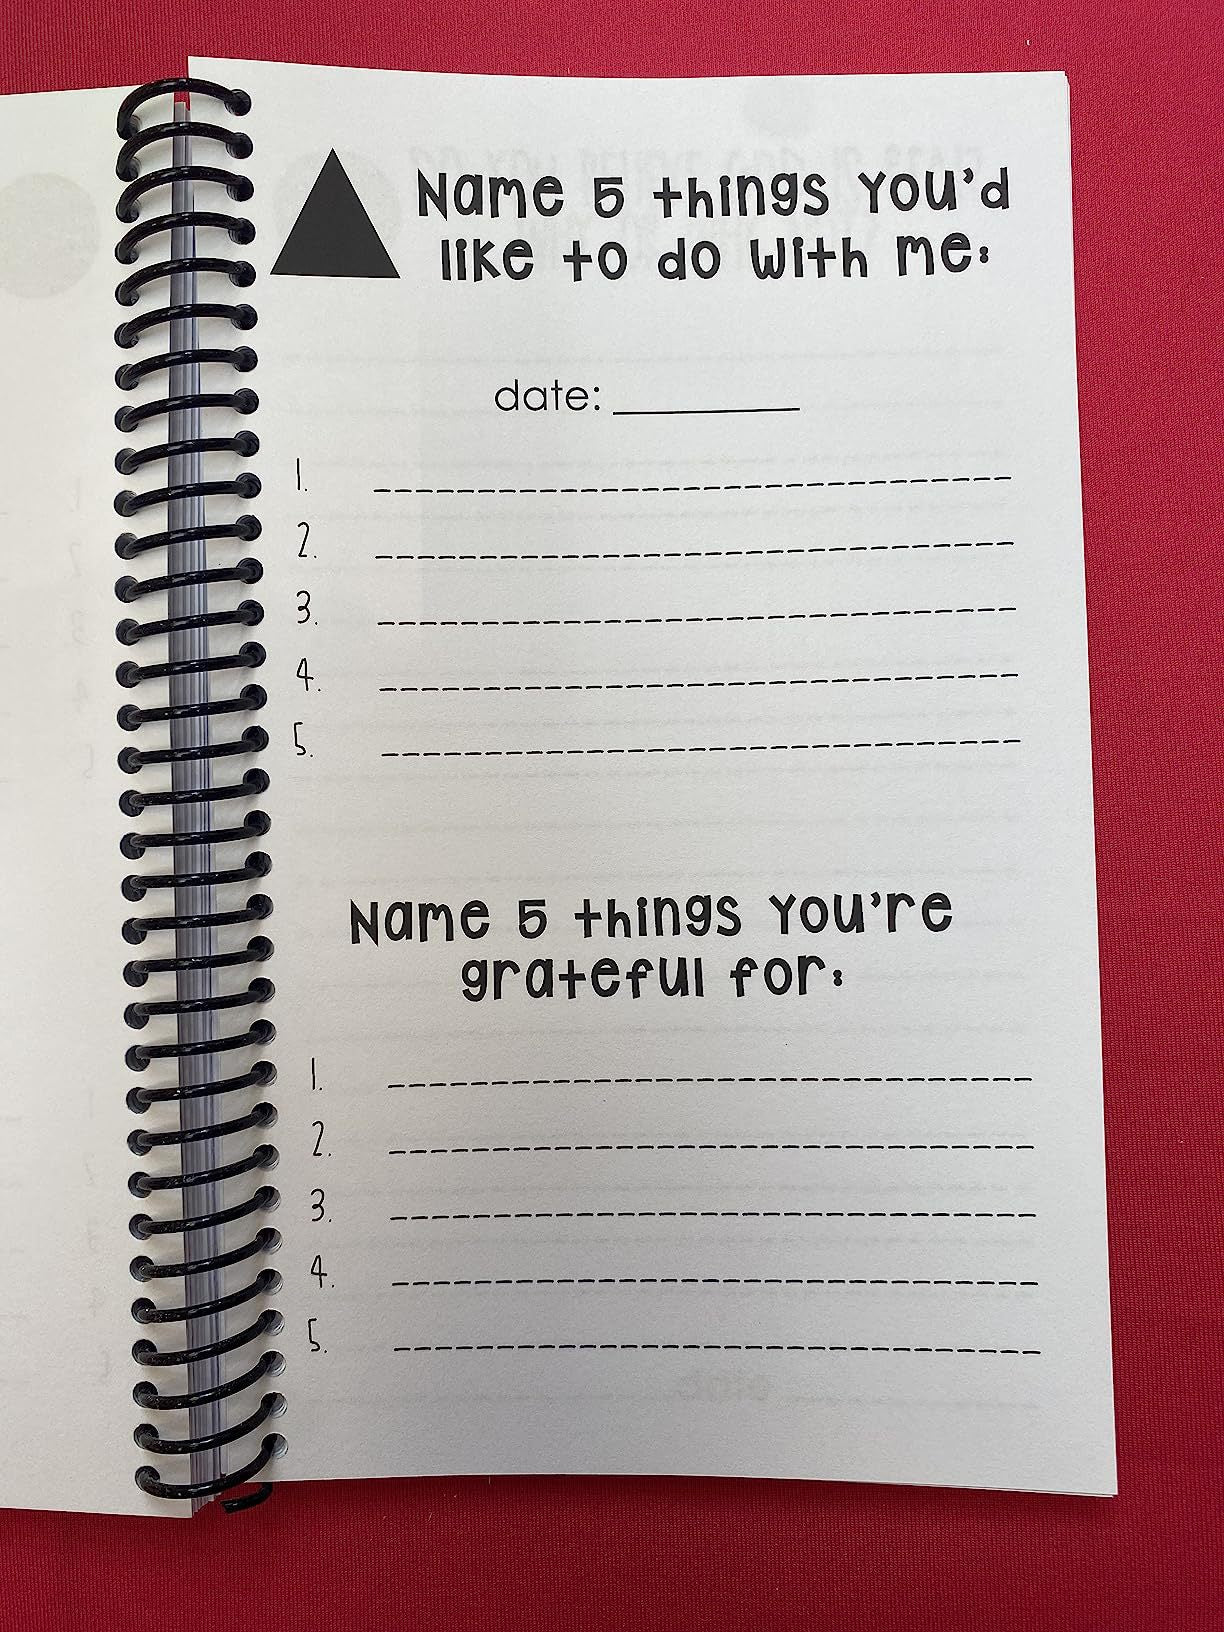 Name 5 things you'd
like to do with me:
date: ________
1.
2.
3.
4.
5.
Name 5 things you're
grateful for:
1.
2.
3.
4.
5.